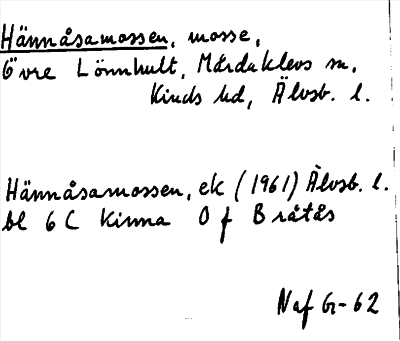 Hännåsamossen, mosse,
Övre Lönnhult, Mårdaklevs sn,
Kinds hd, Älvsb. l.
Hännåsamossen, ek (1961) Älvsb. l.
bl 6 C Kinna 0 f Bråtås
Naf G-62